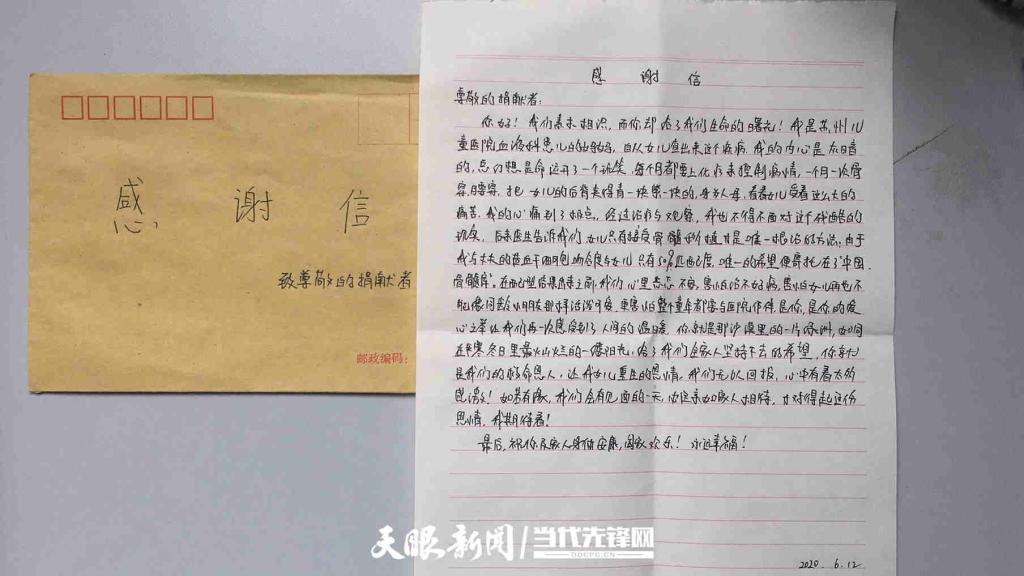 感谢信
致尊敬的捐献者
邮政编码：
感谢信
尊敬的捐献者：
你好！我们素未相识，而你却给了我们生命的曙光！我是苏州儿
童医院血液科患儿的妈妈，自从女儿查出来这个疾病，我的内心是灰暗
的，总幻想是命运开了一个玩笑，每个月都要上化疗来控制病情，一个月一次骨
穿、腰穿，女儿的后背美得青一块紫一块的，身为人母，看着女儿受着这么大的
痛苦，我的心痛到了极点，经过治疗与观察，我也不得不面对这个残酷的
现实，后来医生告诉我们，女儿只有接受骨髓移植才是唯一根治的方法，由于
我与丈夫的造血干细胞吻合度与女儿只有50%匹配度，唯一的希望便寄托在了"中国
骨髓库"，在配型结果未来之前，我们心里忐忑不安，害怕治不好病，害怕女儿再也不
能像同龄小朋友那样活泼可爱，更害怕整个童年都要与医院作伴，是你，是你的爱
心之举让我们再一次感受到了人间的温暖，你就是那沙漠里的一片绿洲，如同
在寒冬日里最灿烂的一缕阳光，给了我们全家人坚持下去的希望，你
是我们的救命恩人，让我女儿重生的恩情，我们无以回报，心中有着太多的
感激！如若有缘，我们会有见面的一天，由此亲如家人才相待，才对得起这份
恩情，我期待着！
最后，祝你及家人身体安康，阖家欢乐！永远幸福！
2020.6.12
天眼新闻/当代先锋网
DDCPC.CN